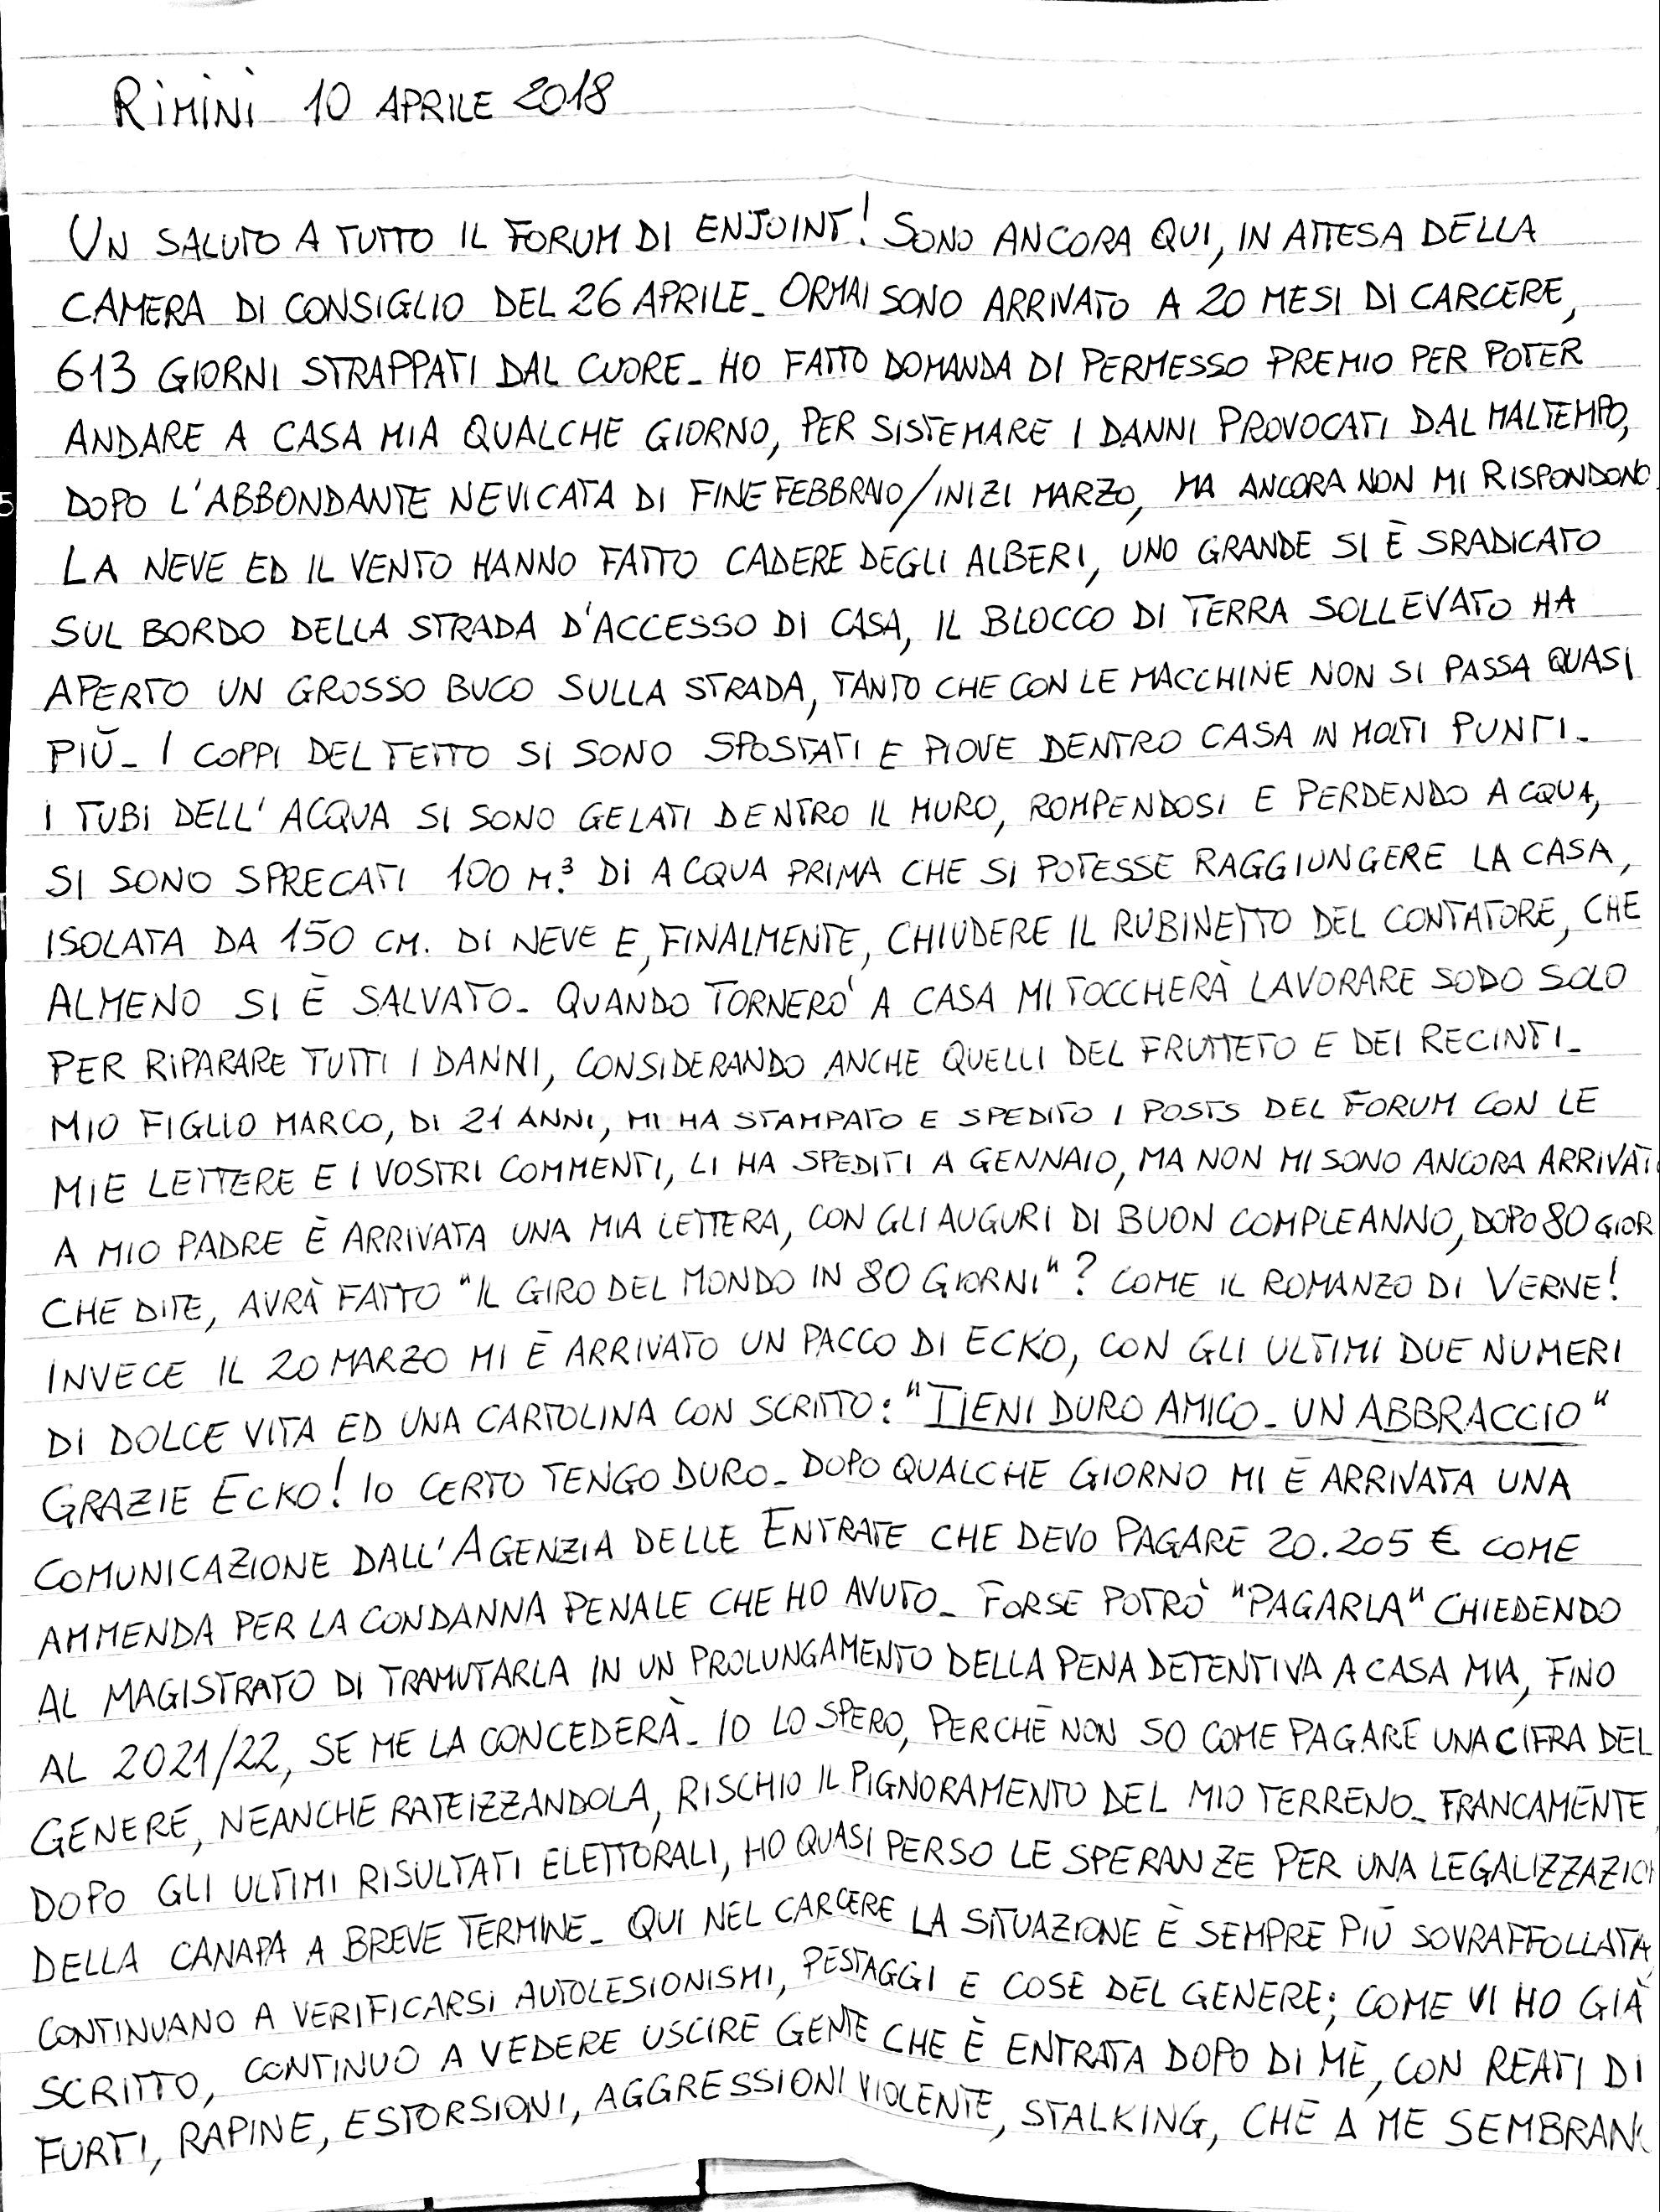 RIMINI 10 APRILE 2018
UN SALUTO A TUTTO IL FORUM DI ENJOINT! SONO ANCORA QUI, IN ATTESA DELLA
CAMERA DI CONSIGLIO DEL 26 APRILE_ ORMAI SONO ARRIVATO A 20 MESI DI CARCERE,
613 GIORNI STRAPPATI DAL CUORE_ HO FATTO DOMANDA DI PERMESSO PREMIO PER POTER
ANDARE A CASA MIA QUALCHE GIORNO, PER SISTEMARE I DANNI PROVOCATI DAL MALTEMPO,
DOPO L'ABBONDANTE NEVICATA DI FINE FEBBRAIO/INIZI MARZO, MA ANCORA NON MI RISPONDONO.
LA NEVE ED IL VENTO HANNO FATTO CADERE DEGLI ALBERI, UNO GRANDE SI È SRADICATO
SUL BORDO DELLA STRADA D'ACCESSO DI CASA, IL BLOCCO DI TERRA SOLLEVATO HA
APERTO UN GROSSO BUCO SULLA STRADA, TANTO CHE CON LE MACCHINE NON SI PASSA QUASI
PIÙ_ I COPPI DEL TETTO SI SONO SPOSTATI E PIOVE DENTRO CASA IN MOLTI PUNTI_
I TUBI DELL'ACQUA SI SONO GELATI DENTRO IL MURO, ROMPENDOSI E PERDENDO ACQUA,
SI SONO SPRECATI 100 M.³ DI ACQUA PRIMA CHE SI POTESSE RAGGIUNGERE LA CASA,
ISOLATA DA 150 CM. DI NEVE E, FINALMENTE, CHIUDERE IL RUBINETTO DEL CONTATORE, CHE
ALMENO SI È SALVATO_ QUANDO TORNERÒ A CASA MI TOCCHERÀ LAVORARE SODO SOLO
PER RIPARARE TUTTI I DANNI, CONSIDERANDO ANCHE QUELLI DEL FRUTTETO E DEI RECINTI_
MIO FIGLIO MARCO, DI 21 ANNI, MI HA STAMPATO E SPEDITO I POSTS DEL FORUM CON LE
MIE LETTERE E I VOSTRI COMMENTI, LI HA SPEDITI A GENNAIO, MA NON MI SONO ANCORA ARRIVATI
A MIO PADRE È ARRIVATA UNA MIA LETTERA, CON GLI AUGURI DI BUON COMPLEANNO, DOPO 80 GIOR
CHE DITE, AVRÀ FATTO "IL GIRO DEL MONDO IN 80 GIORNI"? COME IL ROMANZO DI VERNE!
INVECE IL 20 MARZO MI È ARRIVATO UN PACCO DI ECKO, CON GLI ULTIMI DUE NUMERI
DI DOLCE VITA ED UNA CARTOLINA CON SCRITTO: "TIENI DURO AMICO_ UN ABBRACCIO"
GRAZIE ECKO! IO CERTO TENGO DURO_ DOPO QUALCHE GIORNO MI È ARRIVATA UNA
COMUNICAZIONE DALL'AGENZIA DELLE ENTRATE CHE DEVO PAGARE 20.205 € COME
AMMENDA PER LA CONDANNA PENALE CHE HO AVUTO_ FORSE POTRÒ "PAGARLA" CHIEDENDO
AL MAGISTRATO DI TRAMUTARLA IN UN PROLUNGAMENTO DELLA PENA DETENTIVA A CASA MIA, FINO
AL 2021/22, SE ME LA CONCEDERÀ_ IO LO SPERO, PERCHÉ NON SO COME PAGARE UNA CIFRA DEL
GENERE, NEANCHE RATEIZZANDOLA, RISCHIO IL PIGNORAMENTO DEL MIO TERRENO_ FRANCAMENTE,
DOPO GLI ULTIMI RISULTATI ELETTORALI, HO QUASI PERSO LE SPERANZE PER UNA LEGALIZZAZIO
DELLA CANAPA A BREVE TERMINE_ QUI NEL CARCERE LA SITUAZIONE È SEMPRE PIÙ SOVRAFFOLLATA,
CONTINUANO A VERIFICARSI AUTOLESIONISMI, PESTAGGI E COSE DEL GENERE; COME VI HO GIÀ
SCRITTO, CONTINUO A VEDERE USCIRE GENTE CHE È ENTRATA DOPO DI ME, CON REATI DI
FURTI, RAPINE, ESTORSIONI, AGGRESSIONI VIOLENTE, STALKING, CHE A ME SEMBRAN